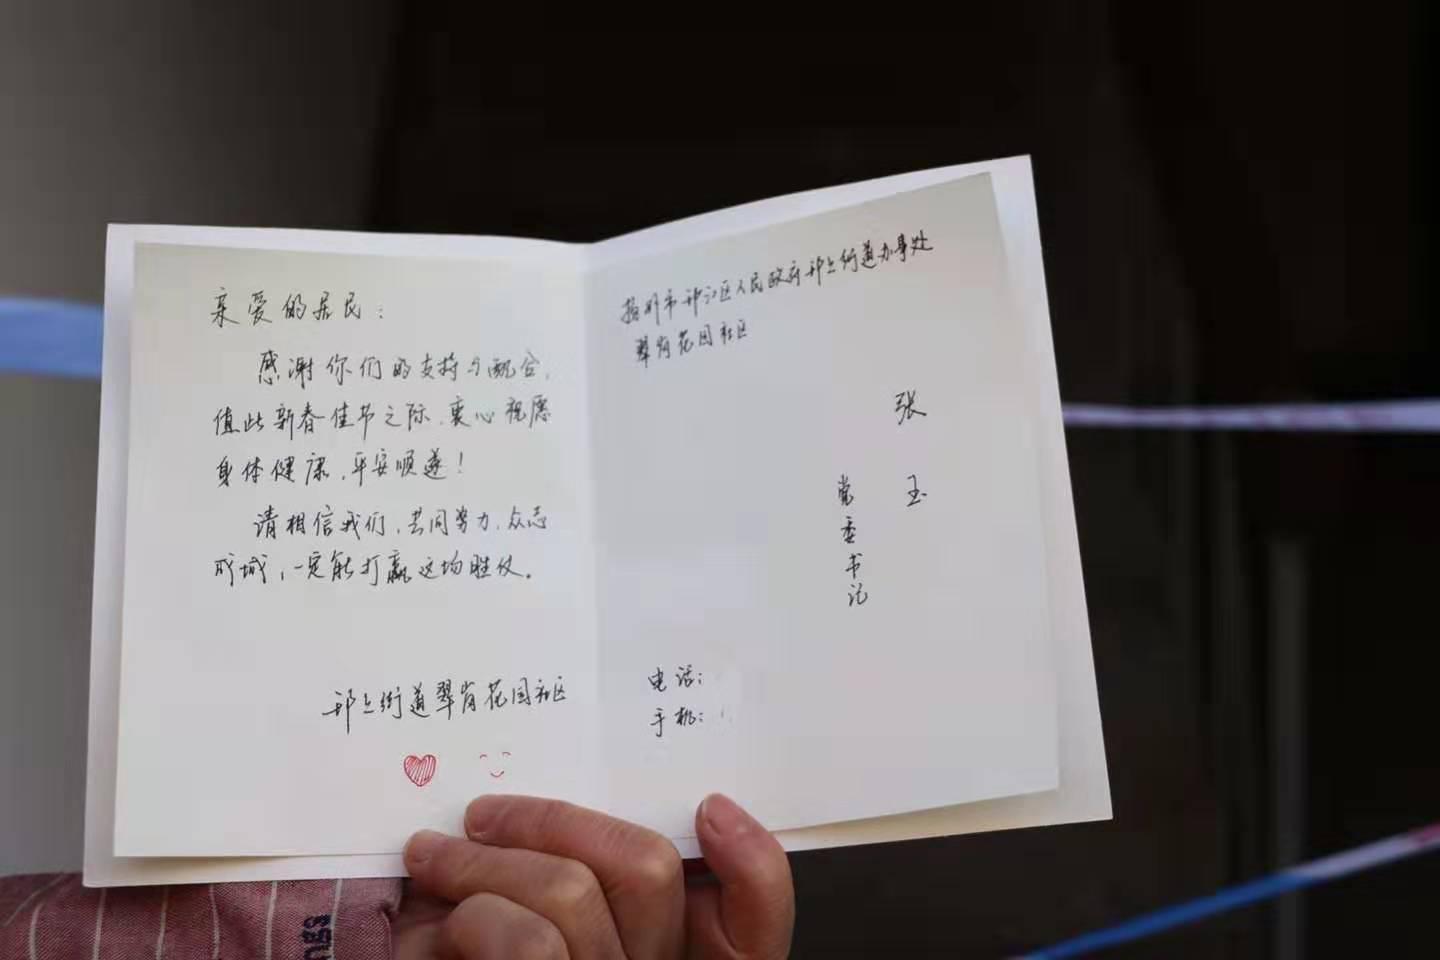 亲爱的居民：
感谢你们的支持与配合，
值此新春佳节之际，衷心祝愿
身体健康，平安顺遂！
请相信我们，共同努力，众志
成城，一定能打赢这场胜仗。
邗上街道翠岗花园社区
扬州市邗江区人民政府邗上街道办事处
翠岗花园社区
张玉
党委书记
电话：
手机：